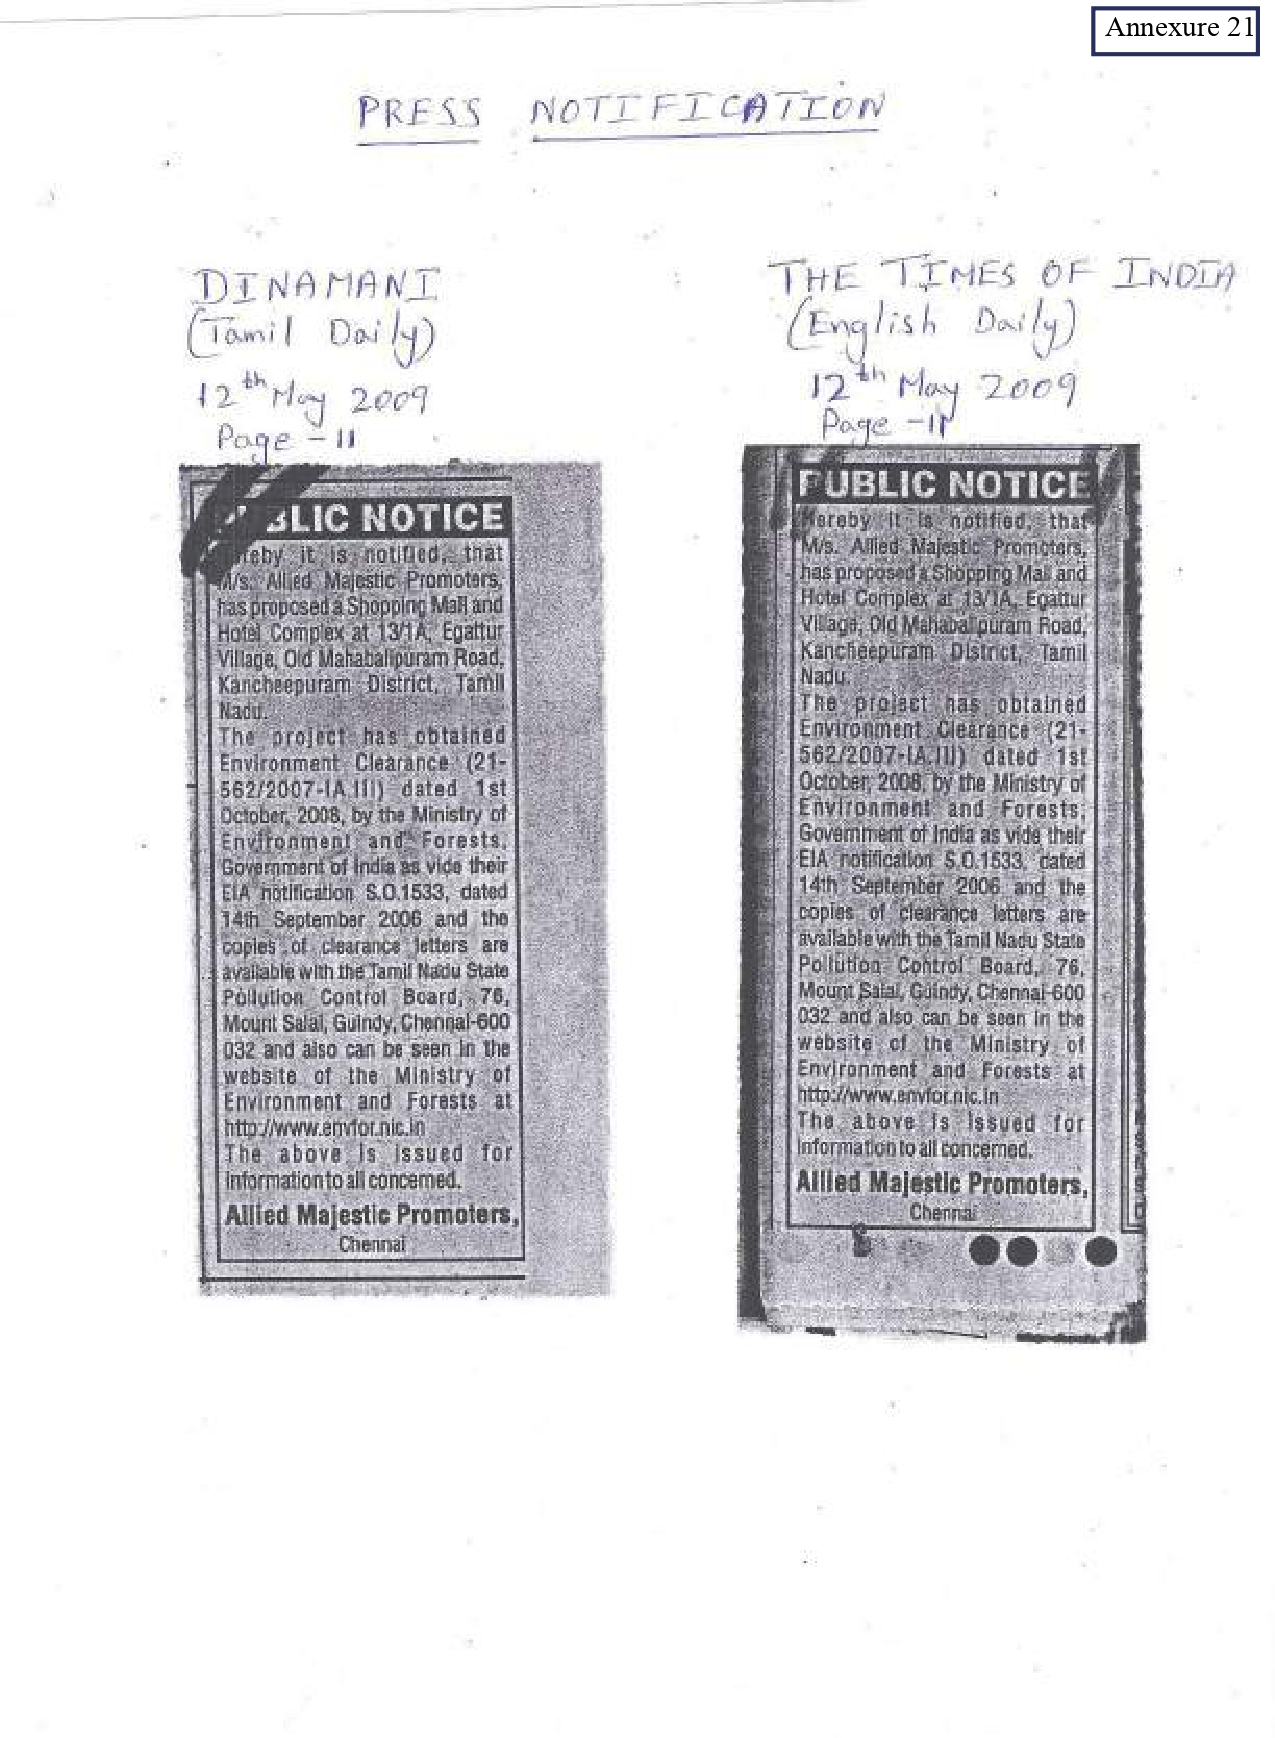 Annexure 21
PRESS NOTIFICATION
DINAMANI
(Tamil Daily)
12th May 2009
Page - 11
PUBLIC NOTICE
Hereby it is notified, that
M/s. Allied Majestic Promoters,
has proposed a Shopping Mall and
Hotel Complex at 13/1A, Egattur
Village, Old Mahabalipuram Road,
Kancheepuram District, Tamil
Nadu.
The project has obtained
Environment Clearance (21-
562/2007-IA.III) dated 1st
October, 2008, by the Ministry of
Environment and Forests,
Government of India as vide their
EIA notification S.O.1533, dated
14th September 2006 and the
copies of clearance letters are
available with the Tamil Nadu State
Pollution Control Board, 76,
Mount Salai, Guindy, Chennai-600
032 and also can be seen in the
website of the Ministry of
Environment and Forests at
http://www.envfor.nic.in
The above is issued for
information to all concerned.
Allied Majestic Promoters,
Chennai
THE TIMES OF INDIA
(English Daily)
12th May 2009
Page - 11
PUBLIC NOTICE
Hereby it is notified, that
M/s. Allied Majestic Promoters,
has proposed a Shopping Mall and
Hotel Complex at 13/1A, Egattur
Village, Old Mahabalipuram Road,
Kancheepuram District, Tamil
Nadu.
The project has obtained
Environment Clearance (21-
562/2007-IA.III) dated 1st
October, 2008, by the Ministry of
Environment and Forests,
Government of India as vide their
EIA notification S.O.1533, dated
14th September 2006 and the
copies of clearance letters are
available with the Tamil Nadu State
Pollution Control Board, 76,
Mount Salai, Guindy, Chennai-600
032 and also can be seen in the
website of the Ministry of
Environment and Forests at
http://www.envfor.nic.in
The above is issued for
information to all concerned.
Allied Majestic Promoters,
Chennai